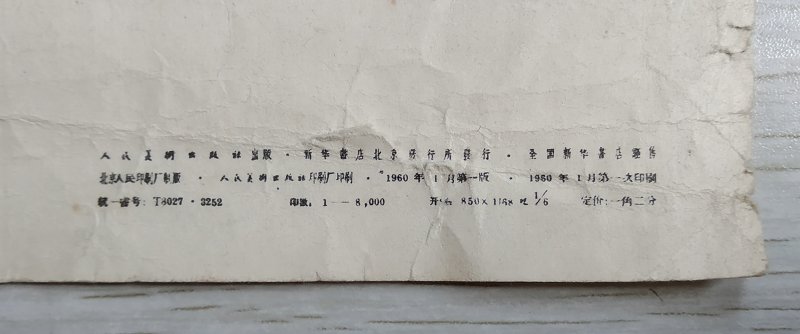 人民美術出版社出版 · 新华書店北京發行所發行 · 全國新华書店經售
北京人民印刷厂制版 · 人民美術出版社印刷厂印刷 · 1960 年 1 月第一版 · 1960 年 1 月第一次印刷
統一書号: T8027 · 3252 印数: 1—8,000 开本 850×1168 1/6 定价:一角二分